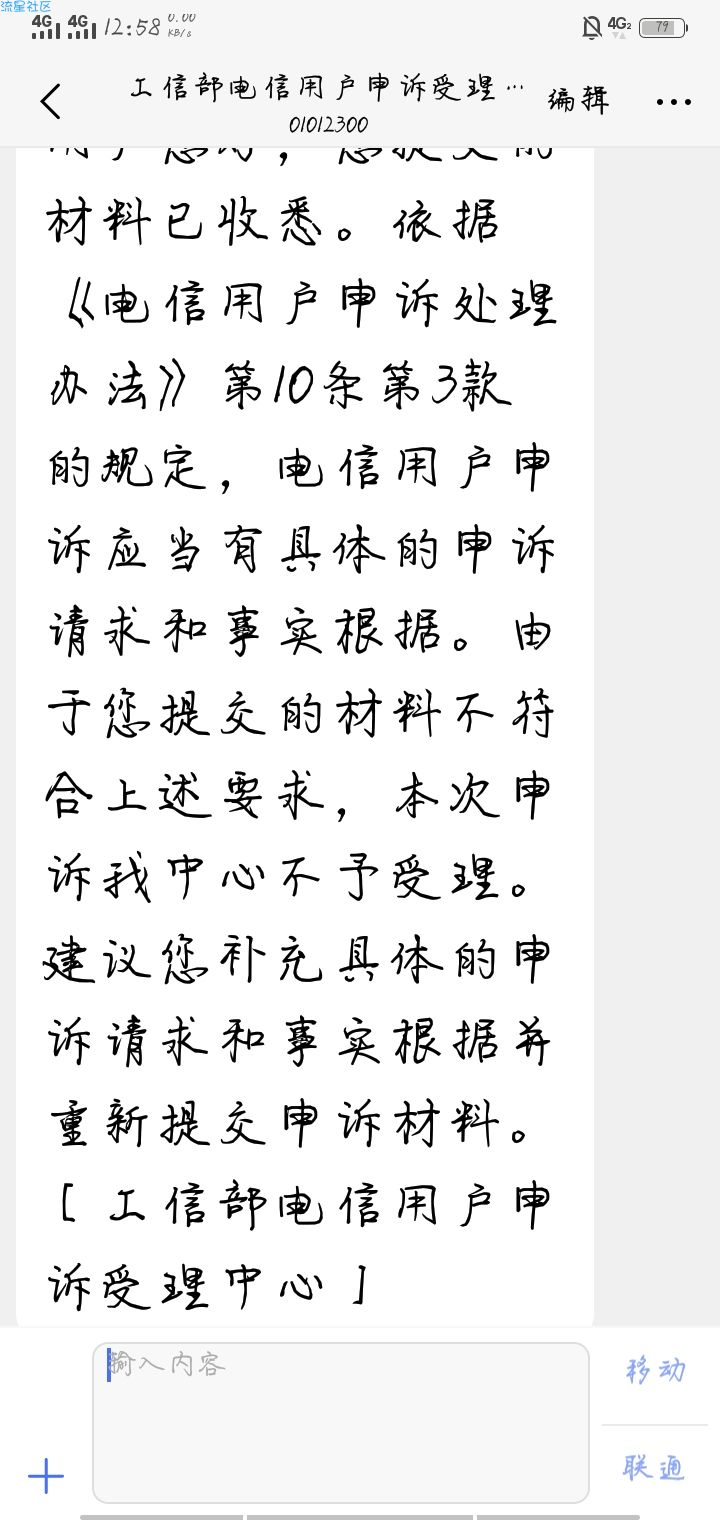 流星社区
4G 4G 12:58 0.00 KB/s 4G2 79
工信部电信用户申诉受理… 编辑
01012300
材料已收悉。依据
《电信用户申诉处理
办法》第10条第3款
的规定，电信用户申
诉应当有具体的申诉
请求和事实根据。由
于您提交的材料不符
合上述要求，本次申
诉我中心不予受理。
建议您补充具体的申
诉请求和事实根据并
重新提交申诉材料。
[工信部电信用户申
诉受理中心]
输入内容
移动
联通